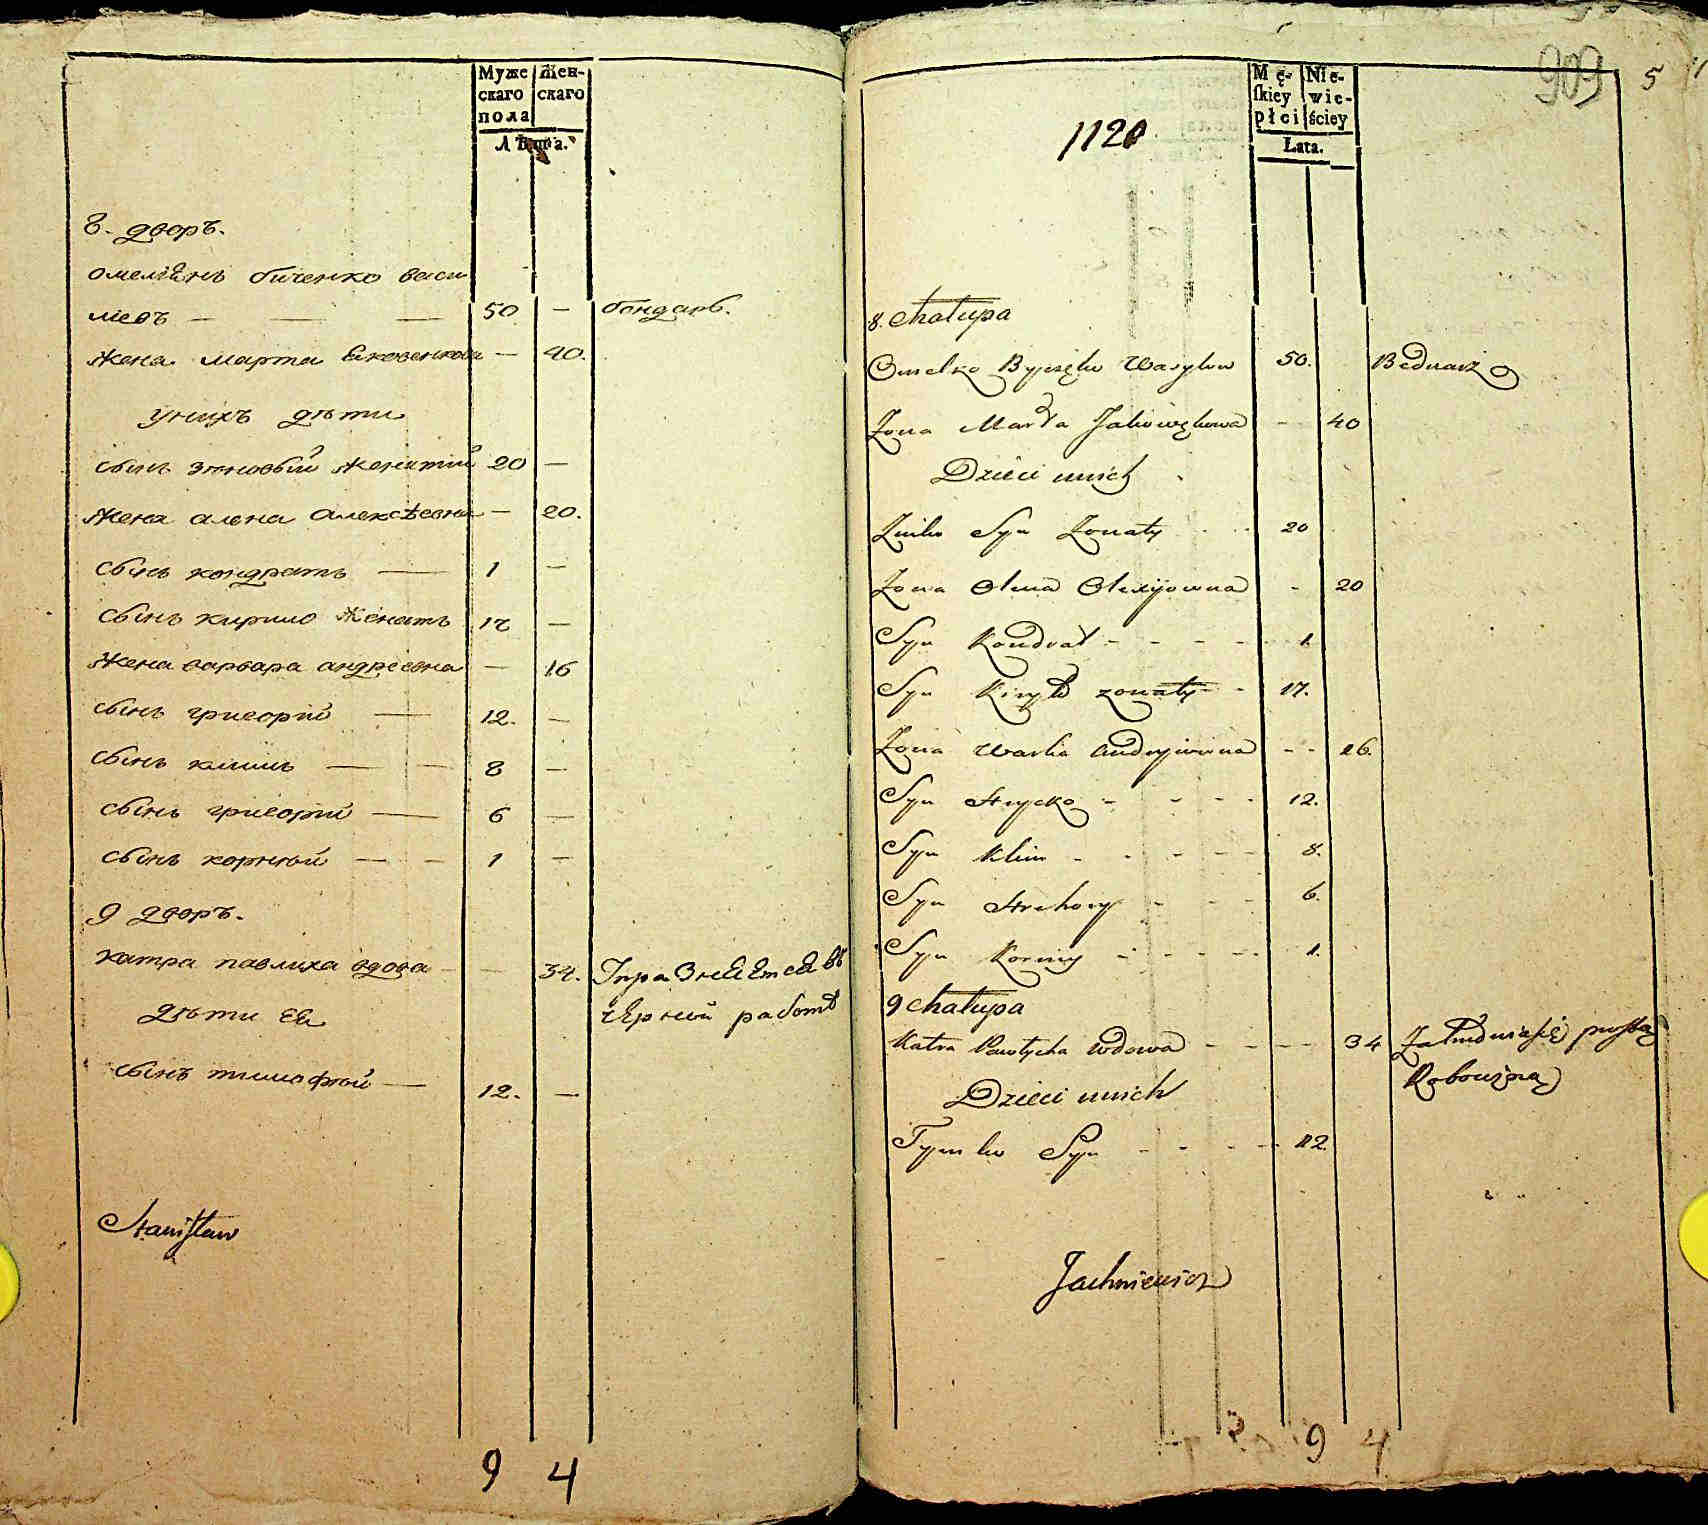 Муже
скаго
пола
Жен-
скаго
Лѣта.
8. дворъ.
омелiянъ биченко васи
лiевъ — — — 50 — бондарь.
жена марта яковенкова — 40.
у нихъ дѣти
сынъ зѣновый женатый 20 —
жена алена алексѣевна — 20.
сынъ кондратъ — 1 —
сынъ кирило женатъ 17 —
жена варвара андреевна — 16
сынъ григорiй — 12. —
сынъ климъ — — 8 —
сынъ григорiй — 6 —
сынъ корнѣй — — 1 —
9 дворъ.
катра павлиха вдова — — 34. Упражняется въ
дѣти ея черной работѣ
сынъ тимофѣй — 12. —
Stanisław
9 4
909 5
1120
Mę-
skiey
płci
Nie-
wie-
ściey
Lata.
8. Chałupa
Omelko Wasylow 50. Bednarz
Żona Marta Jakowękowa - - 40
Dzieci u nich
Zinko Syn Żonaty - - 20
Żona Olena Olexijowna - 20
Syn Kondrat - - - - - 1.
Syn Kiryło żonaty - - 17.
Żona Warka Andryiwna - - 16.
Syn Hrycko - - - - 12.
Syn Klim - - - - - 8.
Syn Hrehory - - - 6.
Syn Korniy - - - - - 1.
9 Chałupa
Katra Pawlycha wdowa - - - - 34 Zatrudnia się prostą
Dzieci u nich Robocizną
Tymko Syn - - - - - 12.
Jachniewicz
9 4